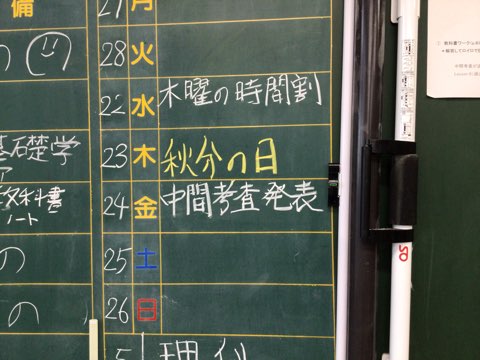 備
月
28 火
22 水 木曜の時間割
基礎学 23 木 秋分の日
教科書 24 金 中間考査発表
ノート
の 25 土
の 26 日